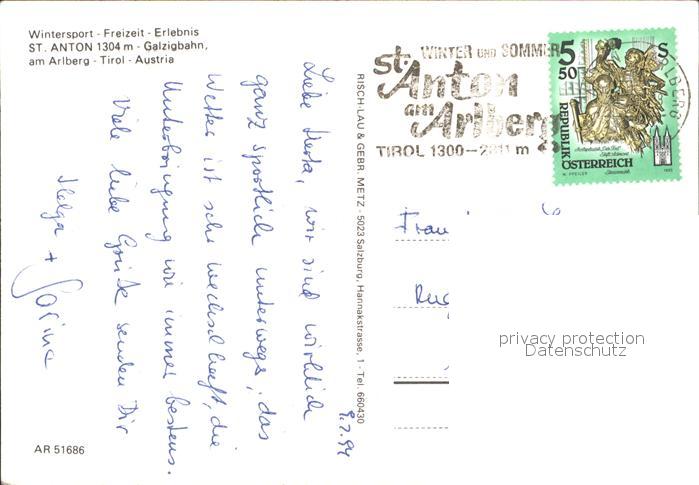 Wintersport - Freizeit - Erlebnis
ST. ANTON 1304 m - Galzigbahn,
am Arlberg - Tirol - Austria
Liebe Herta, wir sind wirklich
ganz sportlich unterwegs, das
Wetter ist sehr wechselhaft, die
Unterbringung wie immer bestens.
Viele liebe Grüße senden Dir
Helga +
9.7.94
AR 51686
RISCH-LAU & GEBR. METZ - 5023 Salzburg, Hannakstrasse, 1 - Tel. 660430
WINTER UND SOMMER
St. Anton
am Arlberg
TIROL 1300-2811 m
ARLBERG
5 50 S
REPUBLIK
ÖSTERREICH
Frau
privacy protection
Datenschutz